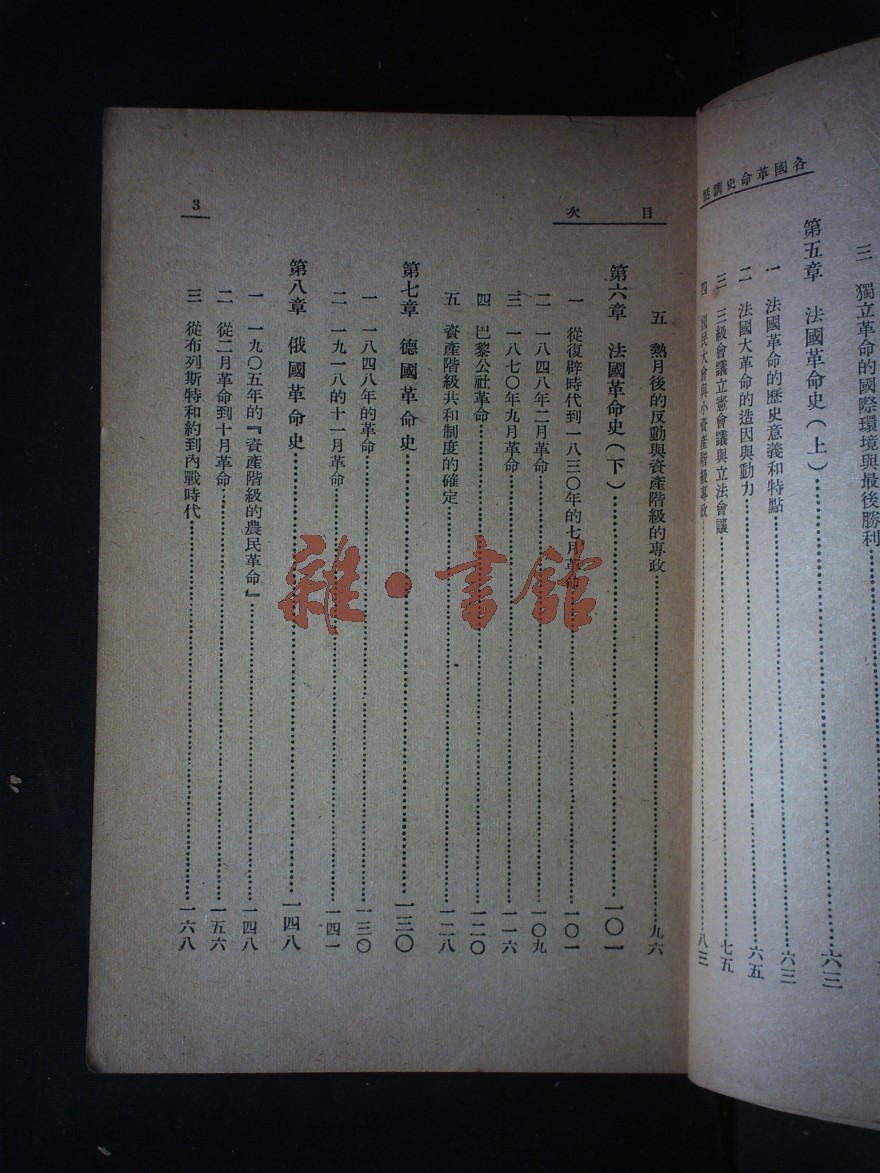 各國革命史講話
三 獨立革命的國際環境與最後勝利
第五章 法國革命史（上）…………六三
一 法國革命的歷史意義和特點…………六三
二 法國大革命的造因與動力…………六五
三 三級會議立憲會議與立法會議…………七五
四 國民大會與小資產階級專政…………八三
目次
五 熱月後的反動與資產階級的專政…………九六
第六章 法國革命史（下）…………一〇一
一 從復辟時代到一八三〇年的七月革命…………一〇一
二 一八四八年二月革命…………一〇九
三 一八七〇年九月革命…………一一六
四 巴黎公社革命…………一二〇
五 資產階級共和制度的確定…………一二八
第七章 德國革命史…………一三〇
一 一八四八年的革命…………一三〇
二 一九一八的十一月革命…………一四一
第八章 俄國革命史…………一四八
一 一九〇五年的『資產階級的農民革命』…………一四八
二 從二月革命到十月革命…………一五六
三 從布列斯特和約到內戰時代…………一六八
3
雜·書館